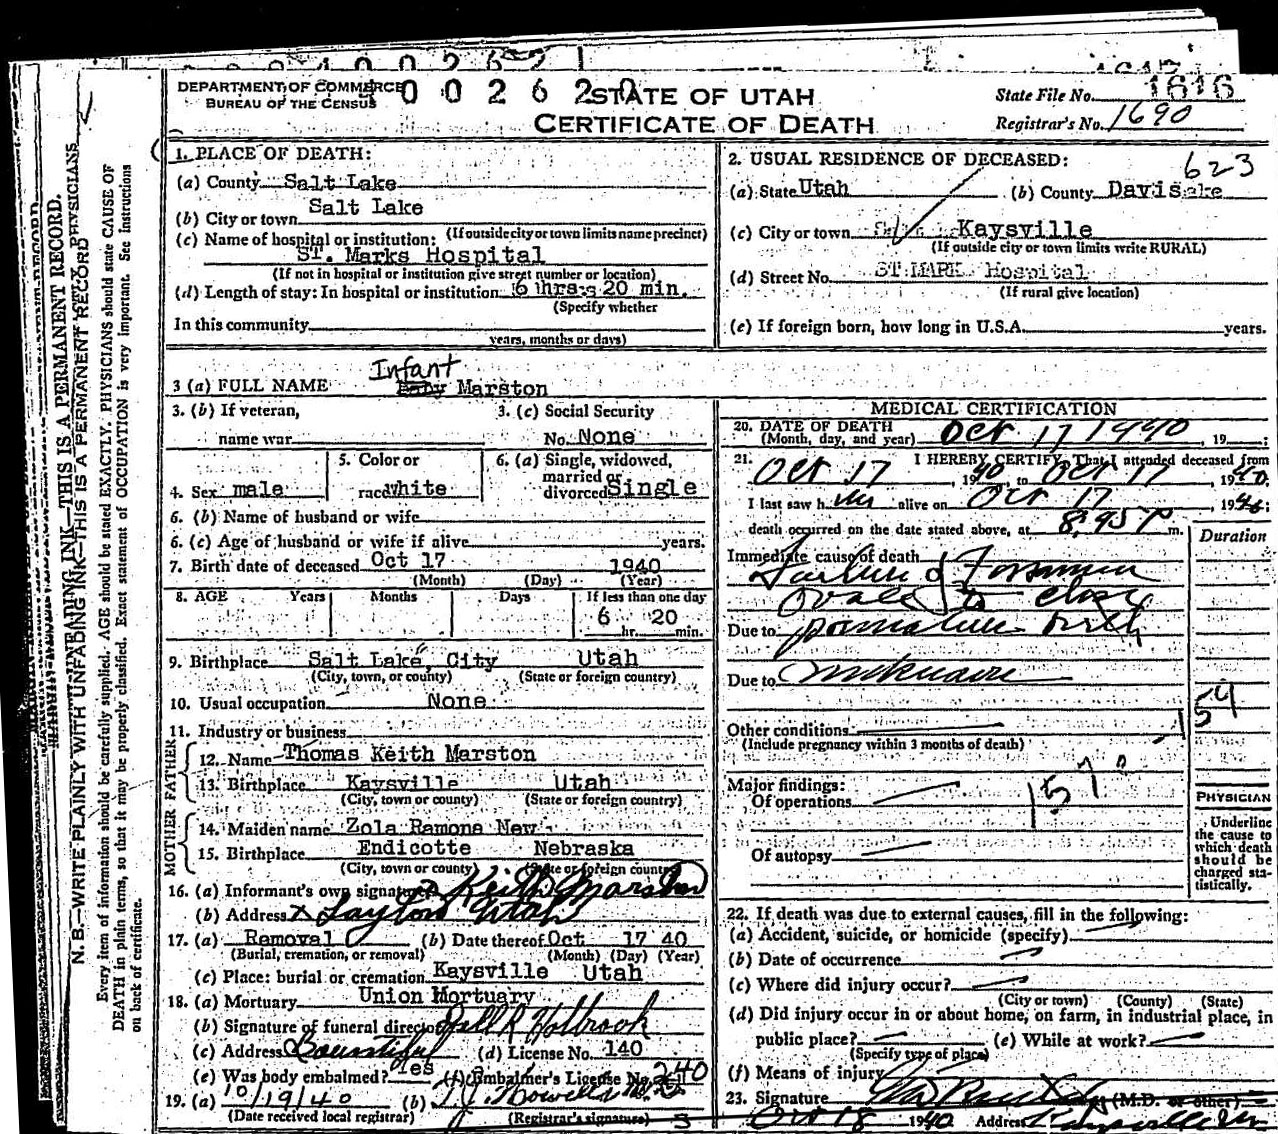 DEPARTMENT OF COMMERCE
BUREAU OF THE CENSUS
STATE OF UTAH
CERTIFICATE OF DEATH
State File No. 1616
Registrar's No. 1690
1. PLACE OF DEATH:
(a) County Salt Lake
(b) City or town Salt Lake
(If outside city or town limits name precinct)
(c) Name of hospital or institution:
ST. Marks Hospital
(If not in hospital or institution give street number or location)
(d) Length of stay: In hospital or institution 6 hrs 20 min.
(Specify whether
In this community
years, months or days)
2. USUAL RESIDENCE OF DECEASED: 623
(a) State Utah (b) County Davis
(c) City or town Kaysville
(If outside city or town limits write RURAL)
(d) Street No. ST MARK Hospital
(If rural give location)
(e) If foreign born, how long in U.S.A. years.
3 (a) FULL NAME Infant Baby Marston
3. (b) If veteran,
name war
3. (c) Social Security
No. None
4. Sex male
5. Color or
race white
6. (a) Single, widowed,
married or
divorced Single
6. (b) Name of husband or wife
6. (c) Age of husband or wife if alive years.
7. Birth date of deceased Oct 17 1940
(Month) (Day) (Year)
8. AGE Years Months Days If less than one day
6 hr. 20 min.
9. Birthplace Salt Lake City Utah
(City, town, or county) (State or foreign country)
10. Usual occupation None
11. Industry or business
FATHER
12. Name Thomas Keith Marston
13. Birthplace Kaysville Utah
(City, town or county) (State or foreign country)
MOTHER
14. Maiden name Zola Ramona New
15. Birthplace Endicotte Nebraska
(City, town or county) (State or foreign country)
16. (a) Informant's own signature Keith Marston
(b) Address x Layton Utah
17. (a) Removal (b) Date thereof Oct 17 40
(Burial, cremation, or removal) (Month) (Day) (Year)
(c) Place: burial or cremation Kaysville Utah
18. (a) Mortuary Union Mortuary
(b) Signature of funeral director Holbrook
(c) Address Bountiful (d) License No. 140
(e) Was body embalmed? Yes (f) Embalmer's License No.
19. (a) 10/19/40 (b)
(Date received local registrar) (Registrar's signature)
MEDICAL CERTIFICATION
20. DATE OF DEATH
(Month, day, and year) Oct 17 1940, 19 ;
21. I HEREBY CERTIFY, That I attended deceased from
Oct 17, 1940, to Oct 17, 1940;
I last saw him alive on Oct 17, 1940;
death occurred on the date stated above, at m.
Duration
Immediate cause of death
Failure of Foramen
Ovale to close
Due to premature birth
Due to
154
Other conditions
(Include pregnancy within 3 months of death)
Major findings:
Of operations
1570
Of autopsy
PHYSICIAN
Underline
the cause to
which death
should be
charged sta-
tistically.
22. If death was due to external causes, fill in the following:
(a) Accident, suicide, or homicide (specify)
(b) Date of occurrence
(c) Where did injury occur?
(City or town) (County) (State)
(d) Did injury occur in or about home, on farm, in industrial place, in
public place? (e) While at work?
(Specify type of place)
(f) Means of injury
23. Signature (M.D. or other)
Oct 18 1940 Address Kaysville
N. B.—WRITE PLAINLY WITH UNFADING INK—THIS IS A PERMANENT RECORD.
Every item of information should be carefully supplied. AGE should be stated EXACTLY. PHYSICIANS should state CAUSE OF
DEATH in plain terms, so that it may be properly classified. Exact statement of OCCUPATION is very important. See instructions
on back of certificate.